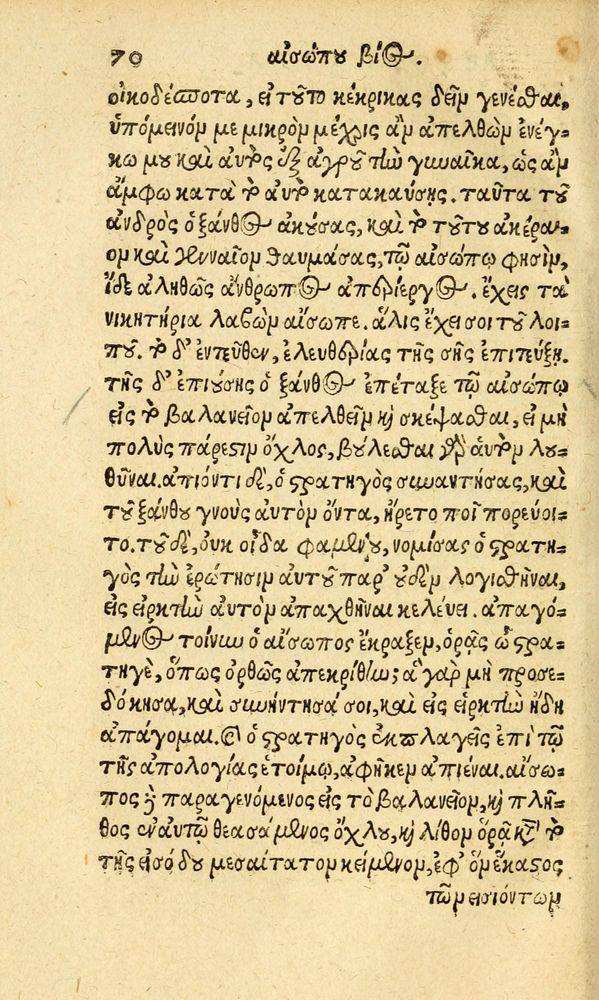 70 αἰσώπου βίος.
οἰκοδέσποτα, εἰ τοῦτο κέκρικας δεῖν γενέσθαι,
ὑπόμεινόν με μικρὸν μέχρις ἂν ἀπελθὼν ἐνέγ-
κω μου καὶ αὐτὸς ἐξ ἀγροῦ τὴν γυναῖκα, ὡς ἂν
ἄμφω κατὰ τὸ αὐτὸ κατακαύσῃς. ταῦτα τοῦ
ἀνδρὸς ὁ ξάνθος ἀκούσας, καὶ τὸ τούτου ἀκέραι-
ον καὶ γενναῖον θαυμάσας, τῷ αἰσώπῳ φησὶν,
ἴδε ἀληθῶς ἄνθρωπος ἀπερίεργος. ἔχεις τὰ
νικητήρια λαβὼν αἴσωπε. ἅλις ἔχει σοι τοῦ λοι-
ποῦ. τὸ δ' ἐντεῦθεν, ἐλευθερίας τῆς σῆς ἐπιτεύξῃ.
τῆς δ' ἐπιούσης ὁ ξάνθος ἐπέταξε τῷ αἰσώπῳ
εἰς τὸ βαλανεῖον ἀπελθεῖν καὶ σκέψασθαι, εἰ μὴ
πολὺς πάρεστιν ὄχλος, βούλεσθαι γὰρ αὑτὸν λου-
θῆναι. ἀπιόντι δὲ, ὁ στρατηγὸς συναντήσας, καὶ
τοῦ ξάνθου γνοὺς αὐτὸν ὄντα, ἤρετο ποῖ πορεύοι-
το. τοῦ δὲ, οὐκ οἶδα φαμένου, νομίσας ὁ στρατη-
γὸς τὴν ἐρώτησιν αὐτοῦ παρ' οὐδὲν λογισθῆναι,
εἰς εἱρκτὴν αὐτὸν ἀπαχθῆναι κελεύει. ἀπαγό-
μενος τοίνυν ὁ αἴσωπος ἔκραξεν, ὁρᾷς ὦ στρα-
τηγὲ, ὅπως ὀρθῶς ἀπεκρίθην; ἃ γὰρ μὴ προσε-
δόκησα, καὶ συνήντησά σοι, καὶ εἰς εἱρκτὴν ἤδη
ἀπάγομαι. καὶ ὁ στρατηγὸς ἐκπλαγεὶς ἐπὶ τῷ
τῆς ἀπολογίας ἑτοίμῳ, ἀφῆκεν ἀπιέναι. αἴσω-
πος δὲ παραγενόμενος εἰς τὸ βαλανεῖον, καὶ πλῆ-
θος ἐν αὐτῷ θεασάμενος ὄχλου, καὶ λίθον ὁρᾷ κατὰ τὸ
τῆς εἰσόδου μεσαίτατον κείμενον, ἐφ' ὃν ἕκαστος
τῶν εἰσιόντων